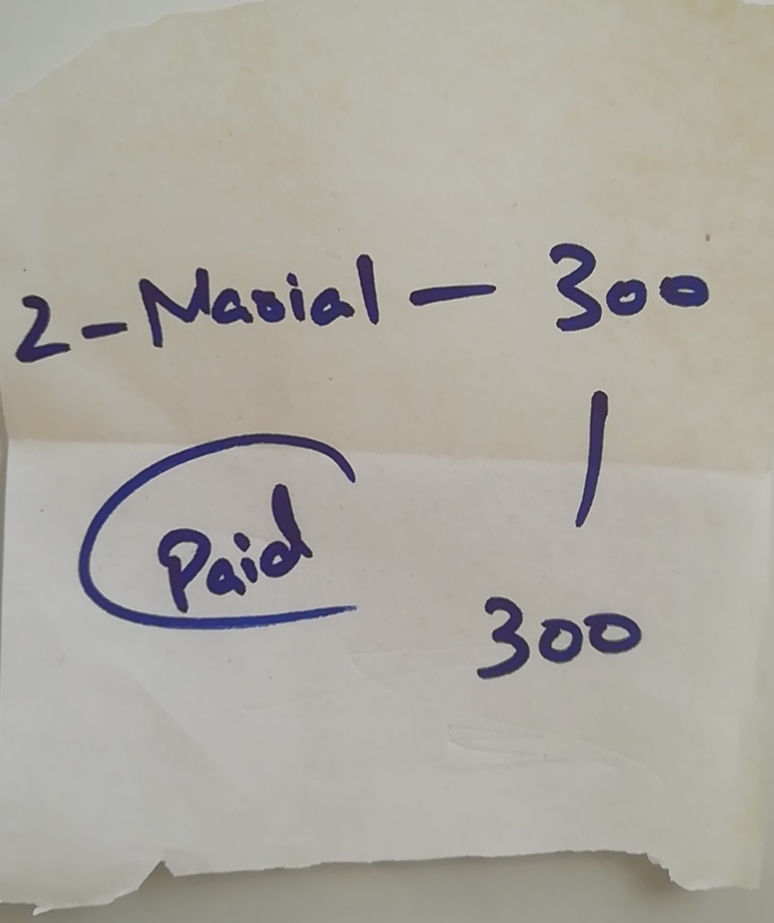 2-Masial — 300
Paid
300